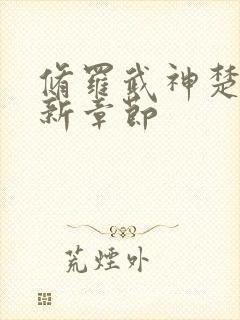 脩羅武神楚
新章節
荒煙外